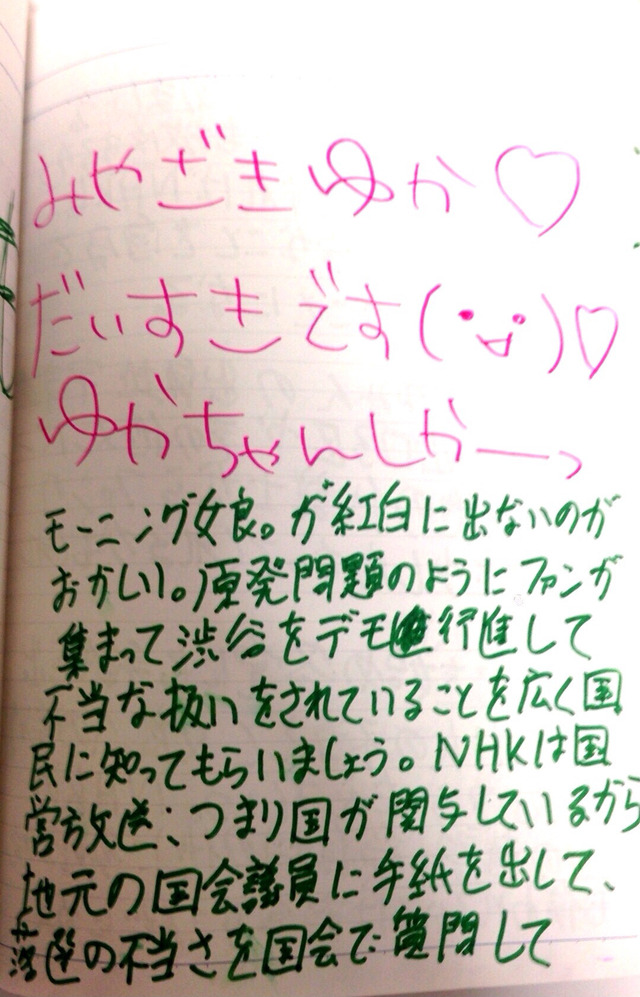 みやざきゆか♡
だいすきです(・ᴗ・)♡
ゆかちゃんしかーっ
モーニング娘。が紅白に出ないのが
おかしい。原発問題のようにファンが
集まって渋谷をデモ行進して
不当な扱いをされていることを広く国
民に知ってもらいましょう。NHKは国
営放送、つまり国が関与しているから
地元の国会議員に手紙を出して、
落選の不当さを国会で質問して